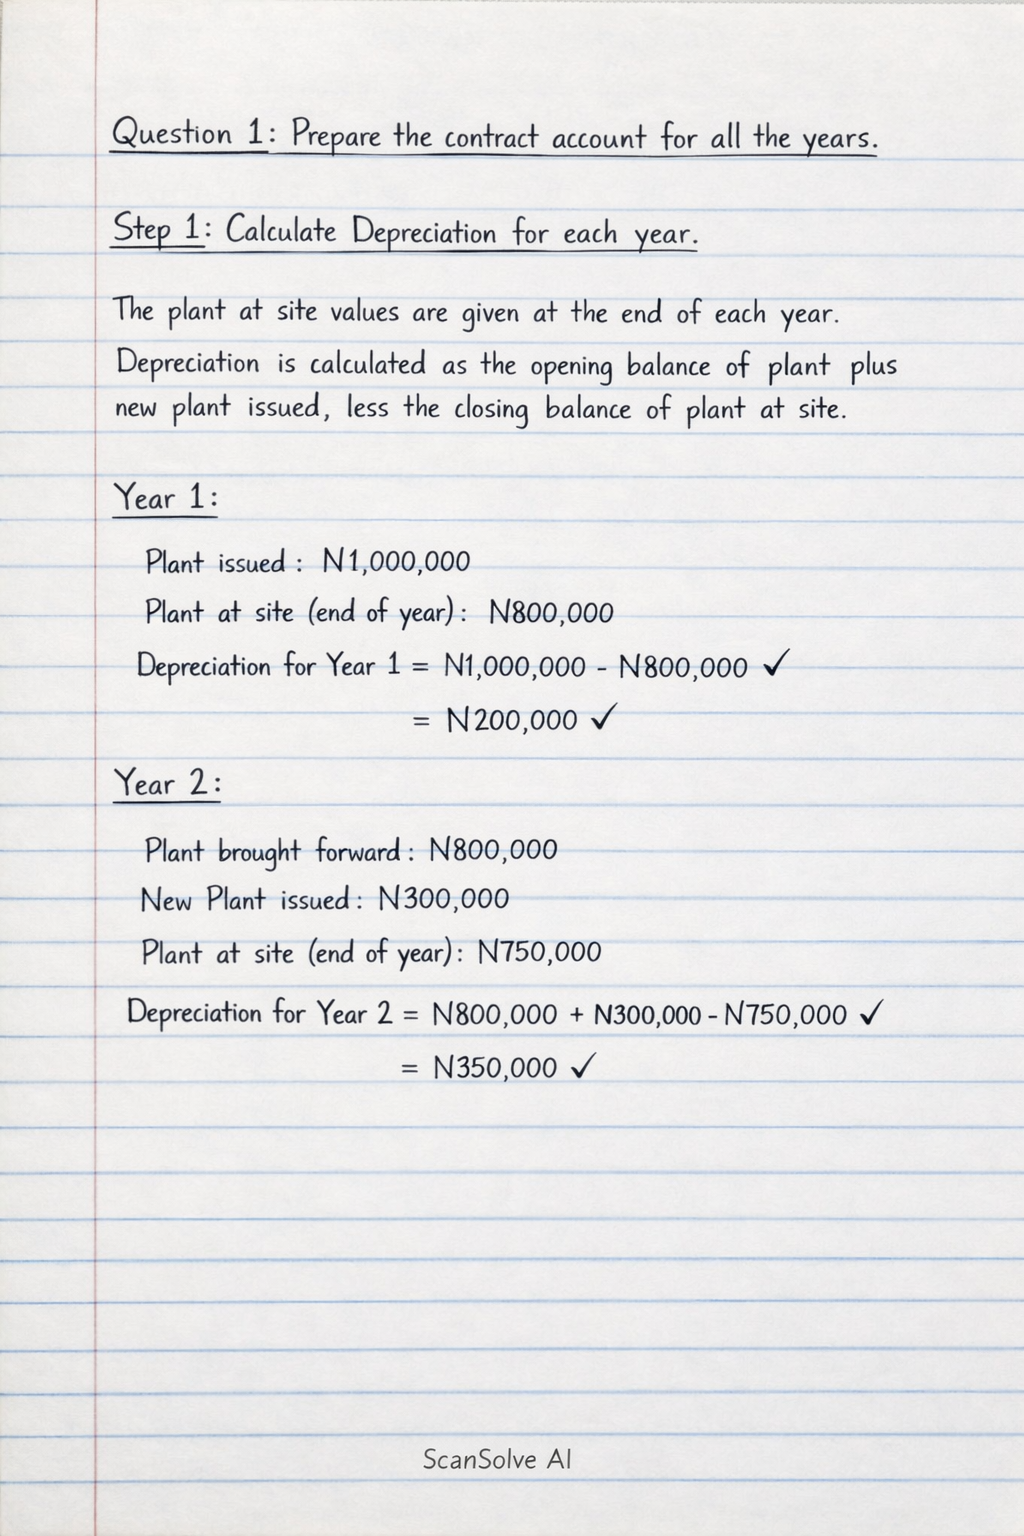 Question 1: Prepare the contract account for all the years.
Step 1: Calculate Depreciation for each year.
The plant at site values are given at the end of each year.
Depreciation is calculated as the opening balance of plant plus
new plant issued, less the closing balance of plant at site.
Year 1:
Plant issued: N1,000,000
Plant at site (end of year): N800,000
Depreciation for Year 1 = N1,000,000 - N800,000 ✓
= N200,000 ✓
Year 2:
Plant brought forward: N800,000
New Plant issued: N300,000
Plant at site (end of year): N750,000
Depreciation for Year 2 = N800,000 + N300,000 - N750,000 ✓
= N350,000 ✓
ScanSolve AI